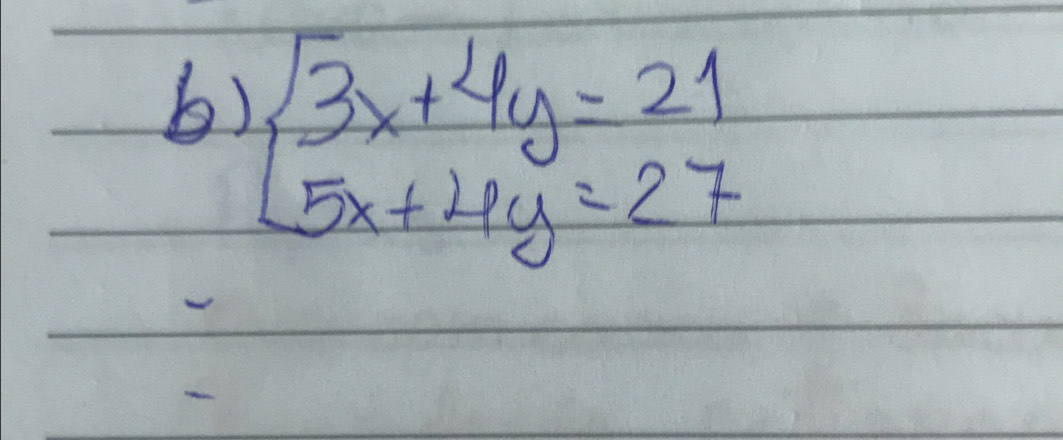 b) { 3x + 4y = 21
5x + 4y = 27
-
-